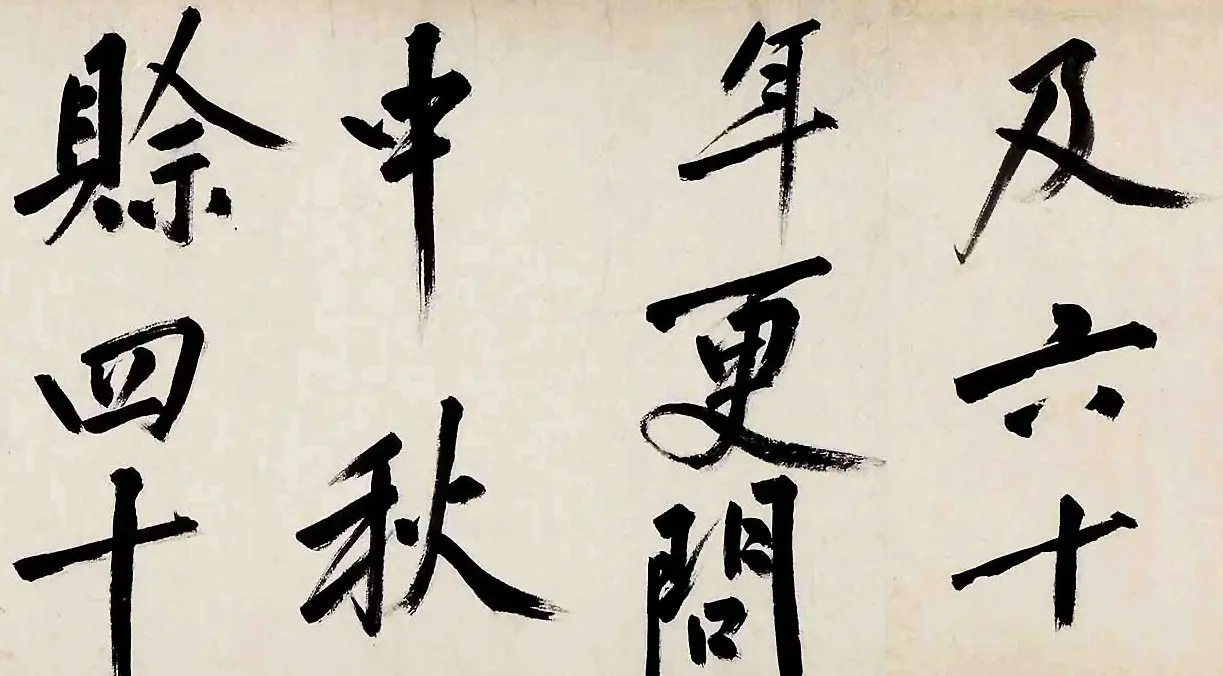 及六十
年更問
中秋
賒四十